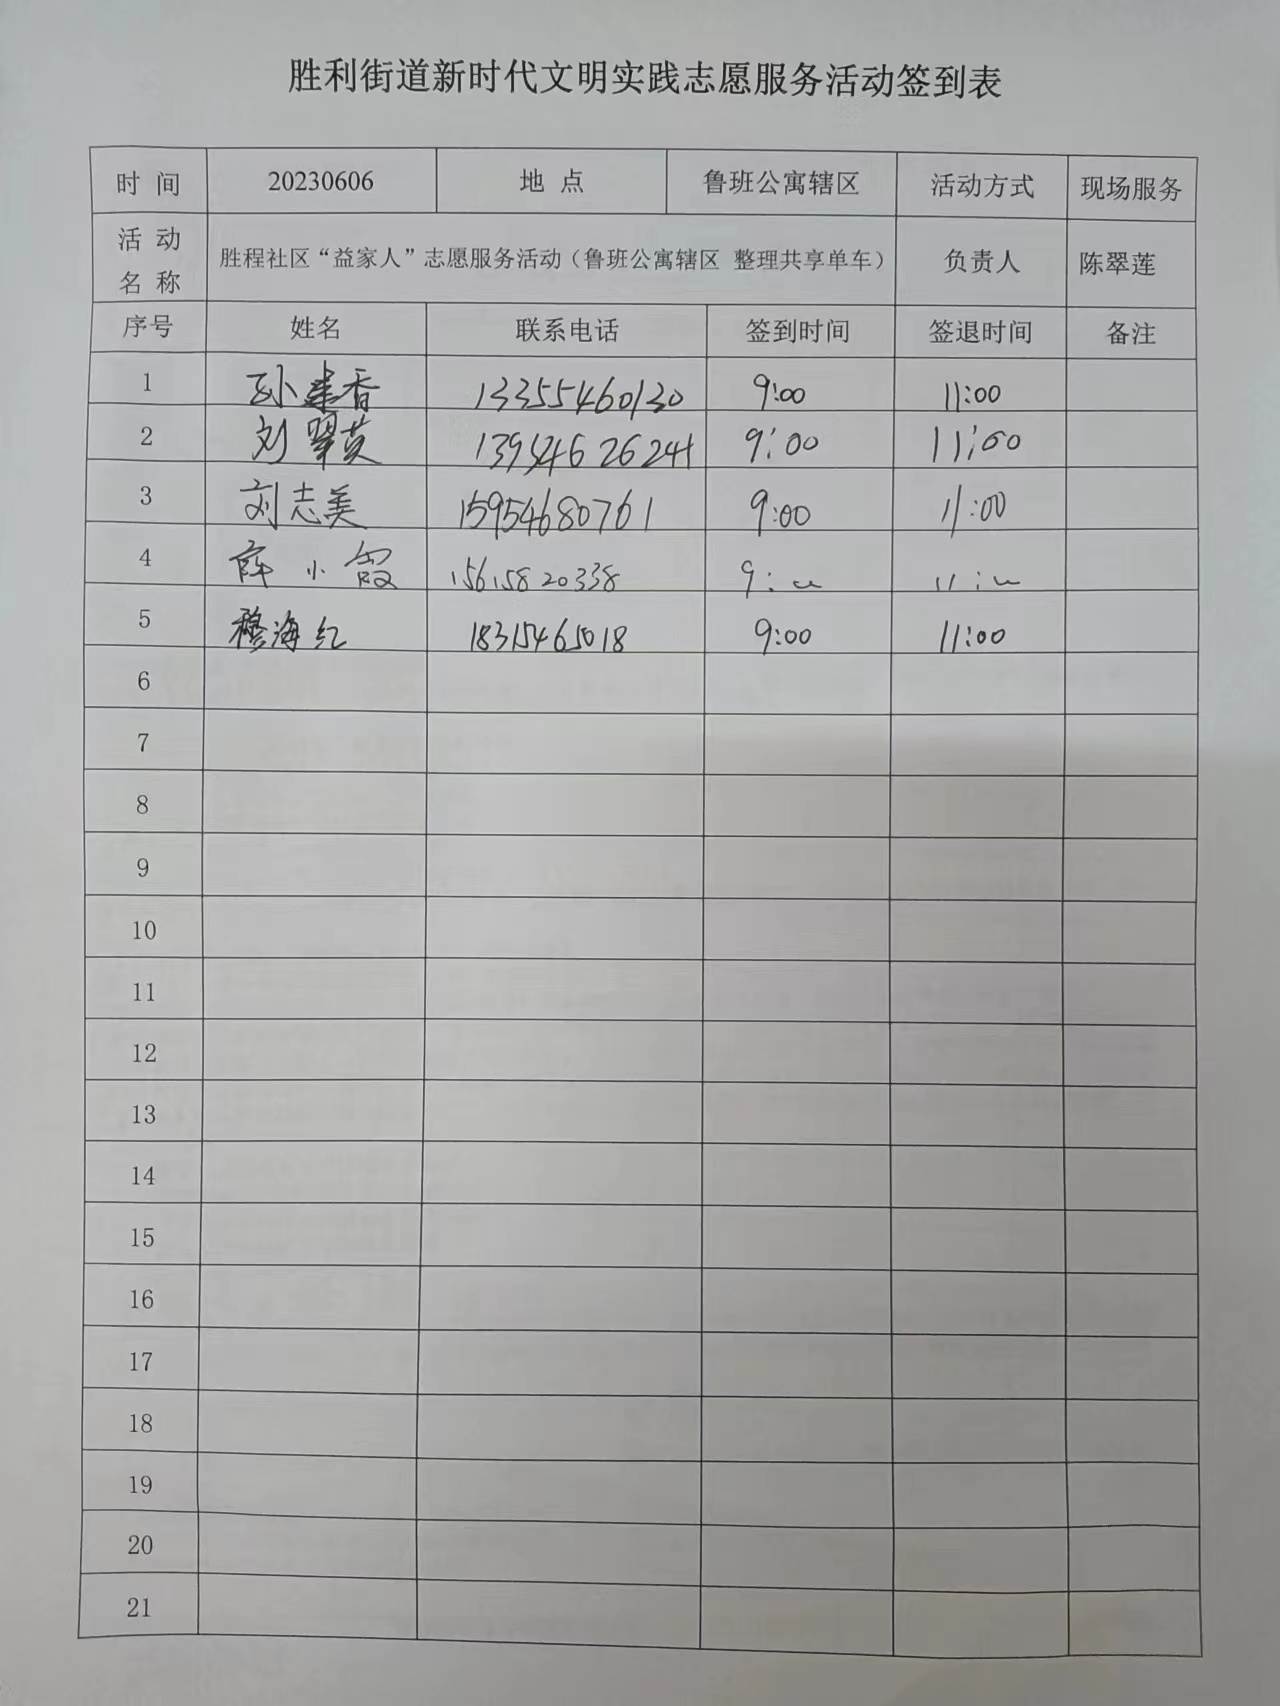 胜利街道新时代文明实践志愿服务活动签到表
时 间 20230606 地 点 鲁班公寓辖区 活动方式 现场服务
活 动 名 称 胜程社区“益家人”志愿服务活动（鲁班公寓辖区 整理共享单车） 负责人 陈翠莲
序号 姓名 联系电话 签到时间 签退时间 备注
1 孙建香 13355460130 9:00 11:00
2 刘翠英 13954626241 9:00 11:00
3 刘志美 15954680761 9:00 11:00
4 薛小霞 15615820338 9:00 11:00
5 穆海红 18315465018 9:00 11:00
6
7
8
9
10
11
12
13
14
15
16
17
18
19
20
21